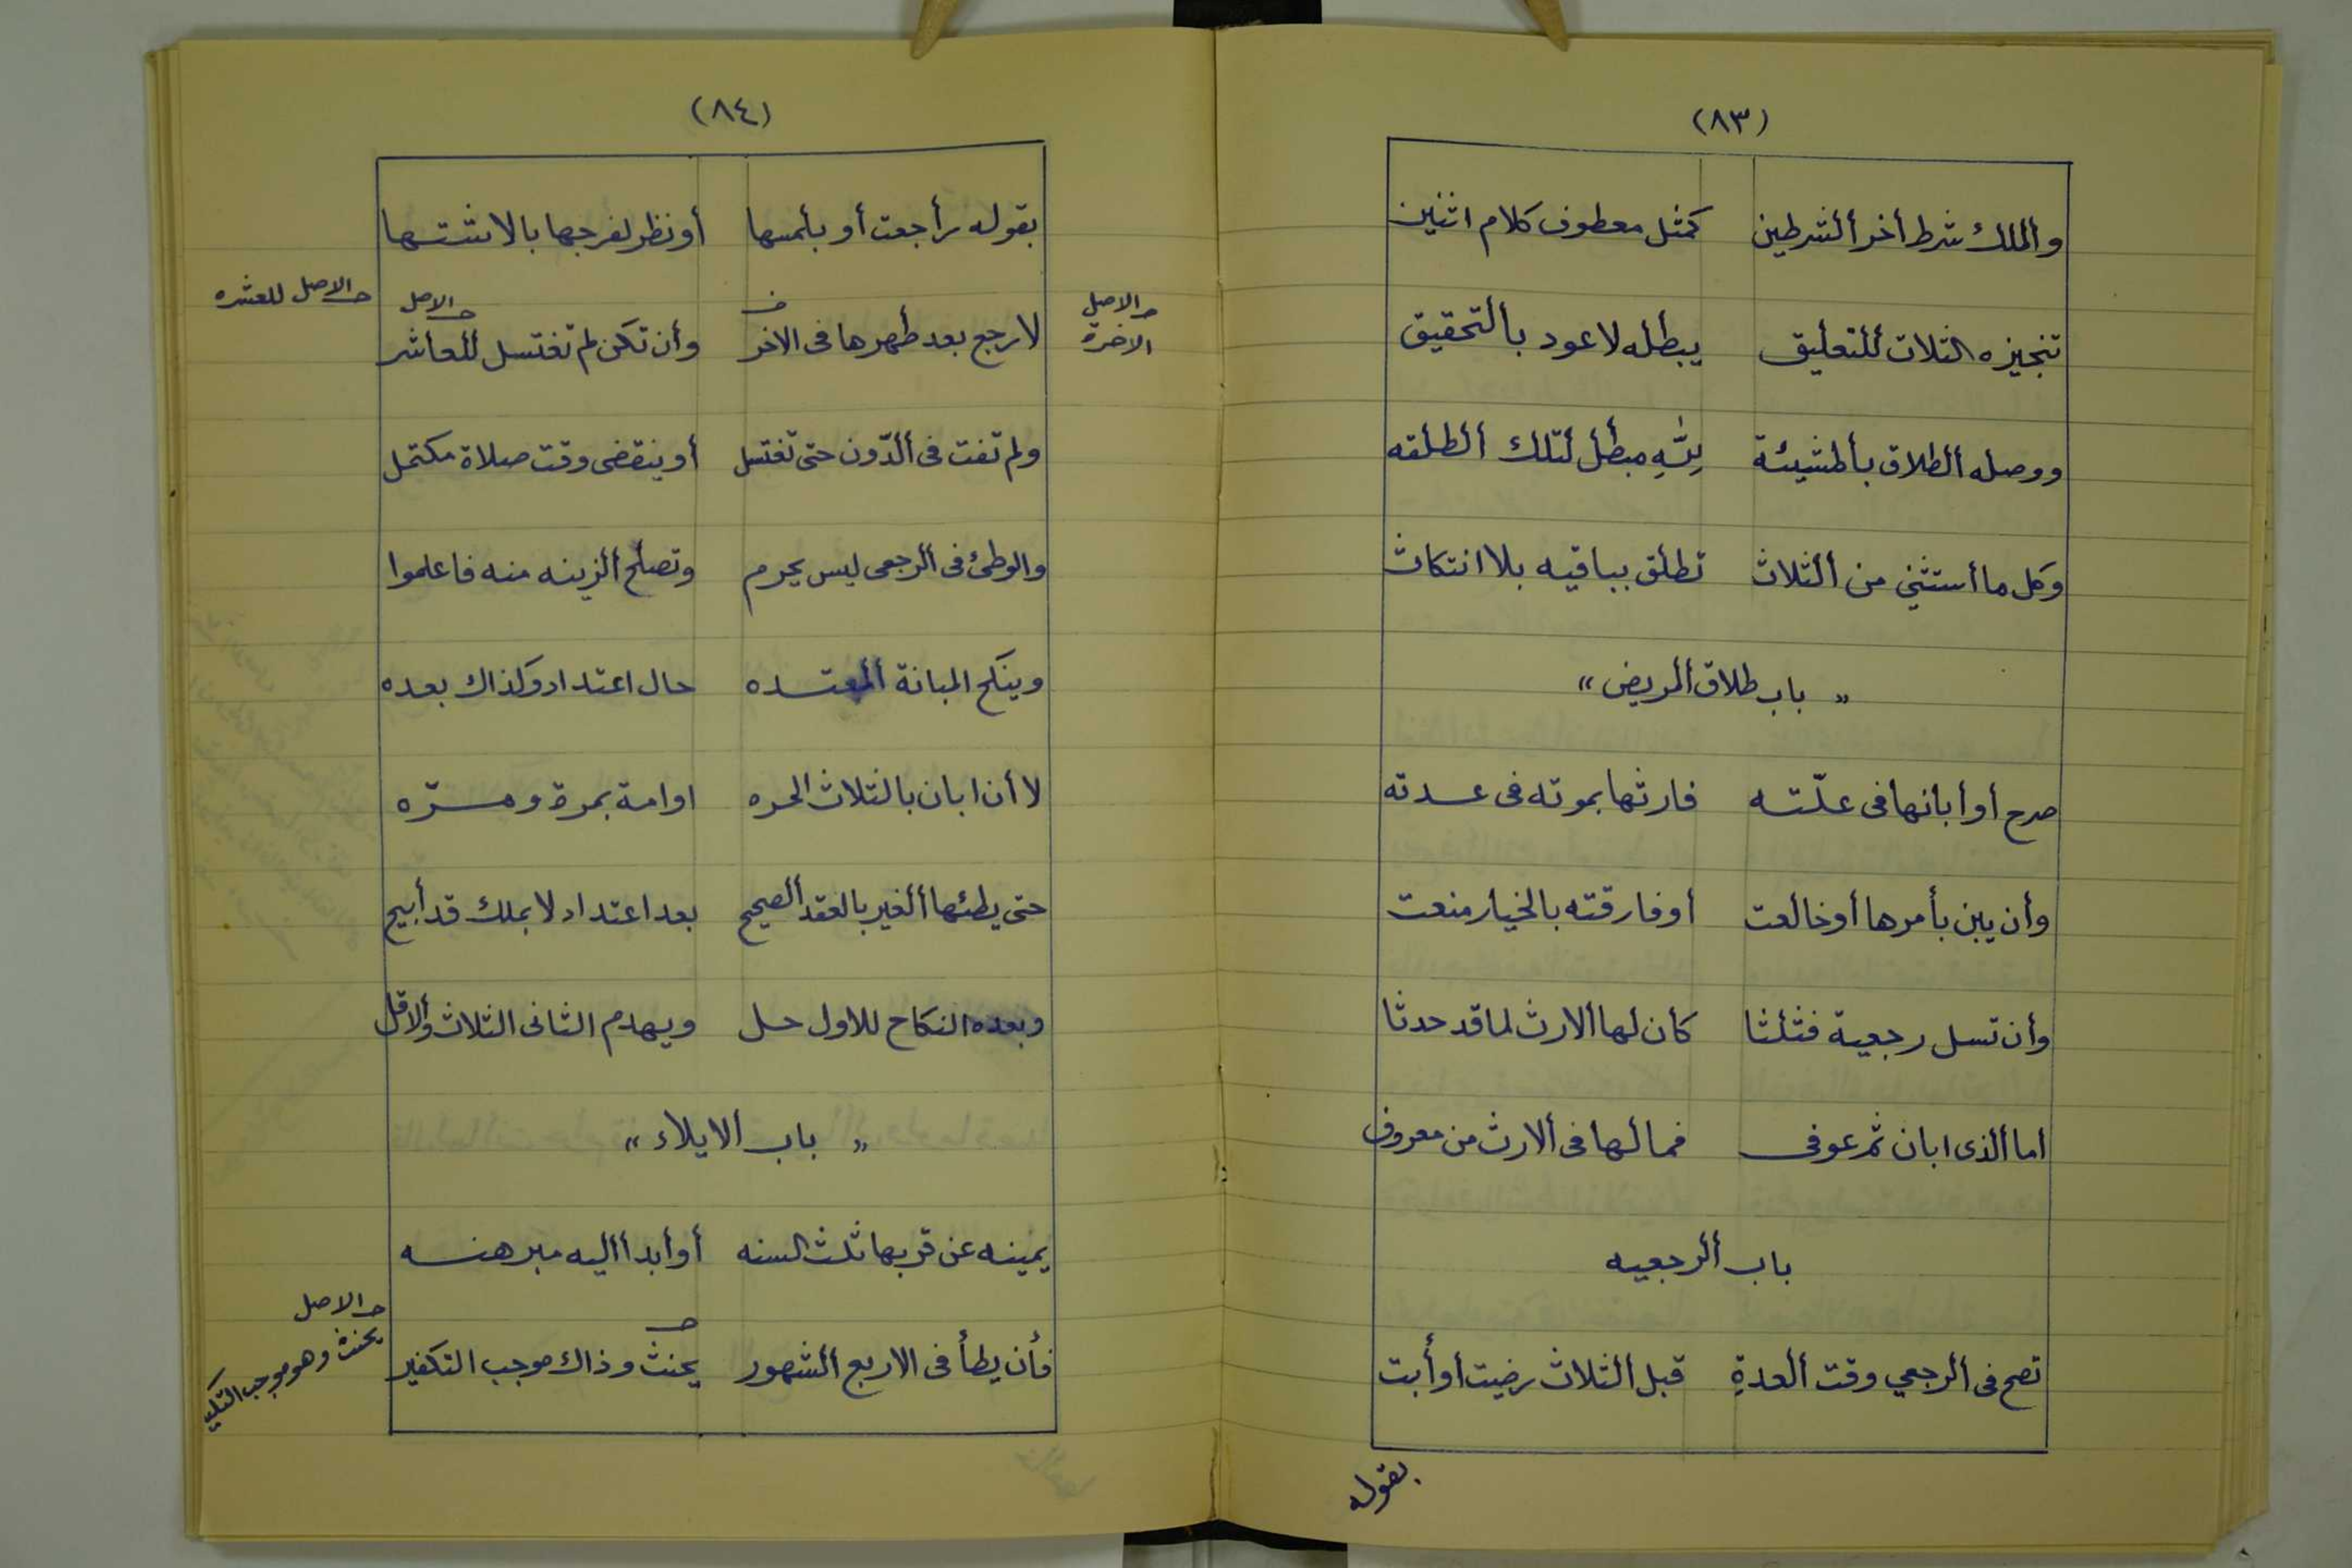 (٨٣)
والملك شرط أخر ألشرطين كمثل معطوف كلام اثنين
تنجيزه الثلاث للتعليق يبطله لاعود بألتحقيق
ووصله ألطلاق بألمشيئة لِلّٰهِ مبطل لتلك ألطلقه
وكل ما أستثني من ألثلاث تطلق بباقيه بلا انتكاث
« باب طلاق ألمريض »
صرح أو أبانها فى علّته فارثها بموته فى عدته
وأن يبن بأمرها أو خالعت أو فارقته بالخيار منعت
وأن تسل رجعية فثلثا كان لها ألارث لما قد حدثا
اما ألذى ابان ثم عوفى فمالها فى ألارث من معروف
باب ألرجعيه
تصح فى ألرجعي وقت ألعدةِ قبل ألثلاث رضيت أو أبت
بقوله
(٨٤)
بقوله راجعت أو بألمسها أو نظر لفرجها بالاشتها
لا رجع بعد طهرها فى الاخر وأن تكن لم تغتسل للعاشر
حـ الاصل الاخرة
حـ الاصل
حـ الاصل للعشره
ولم تفت فى ألدّون حتى تغتسل أو ينقضى وقت صلاة مكتمل
والوطئ فى ألرجعى ليس يحرم وتصلح ألزينه منه فاعلموا
وينكح المبانة ألمعتده حال اعتداد وكذاك بعده
لا أن ابان بالثلاث الحره اوامة بمرة ومرّه
حتى يطئها ألغير بالعقد ألصحيح بعد اعتداد لا بملك قد أبيح
وبعده النكاح للاول حل ويهدم الثانى الثلاث وألاقل
« باب ألايلاء »
يمينه عن قربها ثلث السنه أو أبدا أليه مبرهنه
فأن يطأ فى الاربع ألشهور يحنث وذاك موجب التكفير
حـ الاصل
يحنث وهو موجب